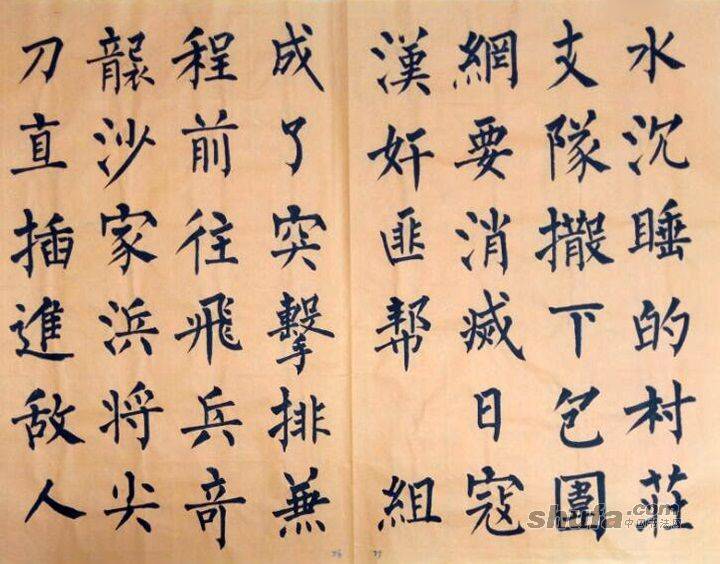 水沉睡的村莊
支隊撒下包圍
網要消滅日寇
漢奸匪幫 組
成了突擊排兼
程前往飛兵奇
襲沙家浜将尖
刀直插進敌人
shufa.com
中国书法网